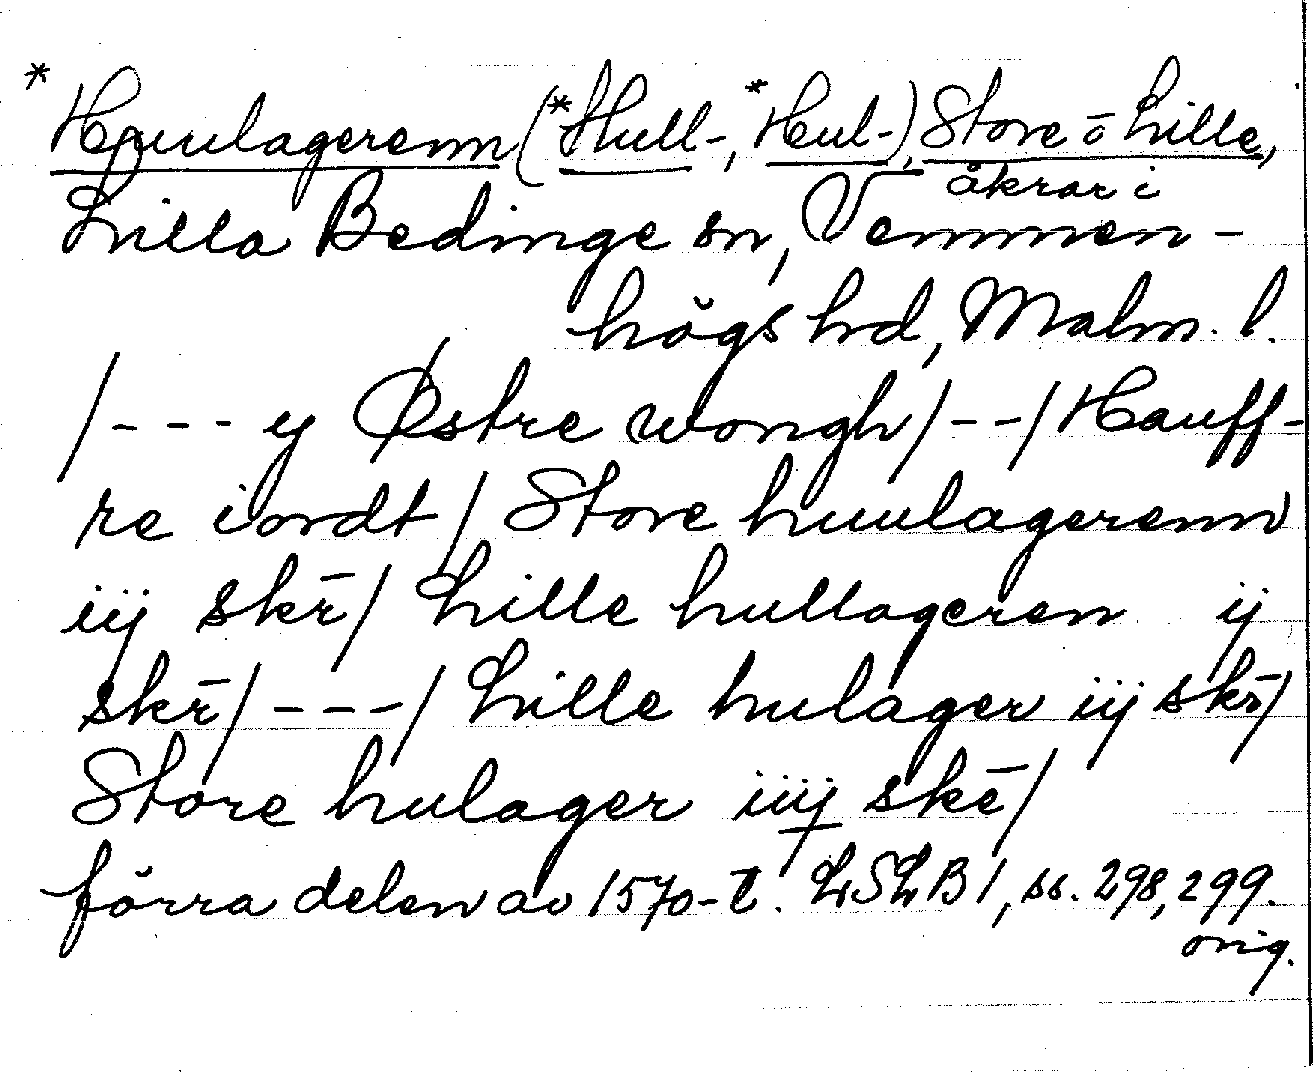 *Huulagerenn (*Hull-, *Hul-), Store o Lille,
åkrar i
Lilla Bedinge sn, Vemmen-
högs hd, Malm. l.
/--- y Østre wongh/--/Hauff-
re iordt/ Store huulagerenn
iij skr̄/ Lille hullageren ij
skr̄/---/ Lille hulager iij skr̄/
Store hulager iiij skē/
förra delen av 1570-t. LSLB 1, ss. 298, 299.
orig.